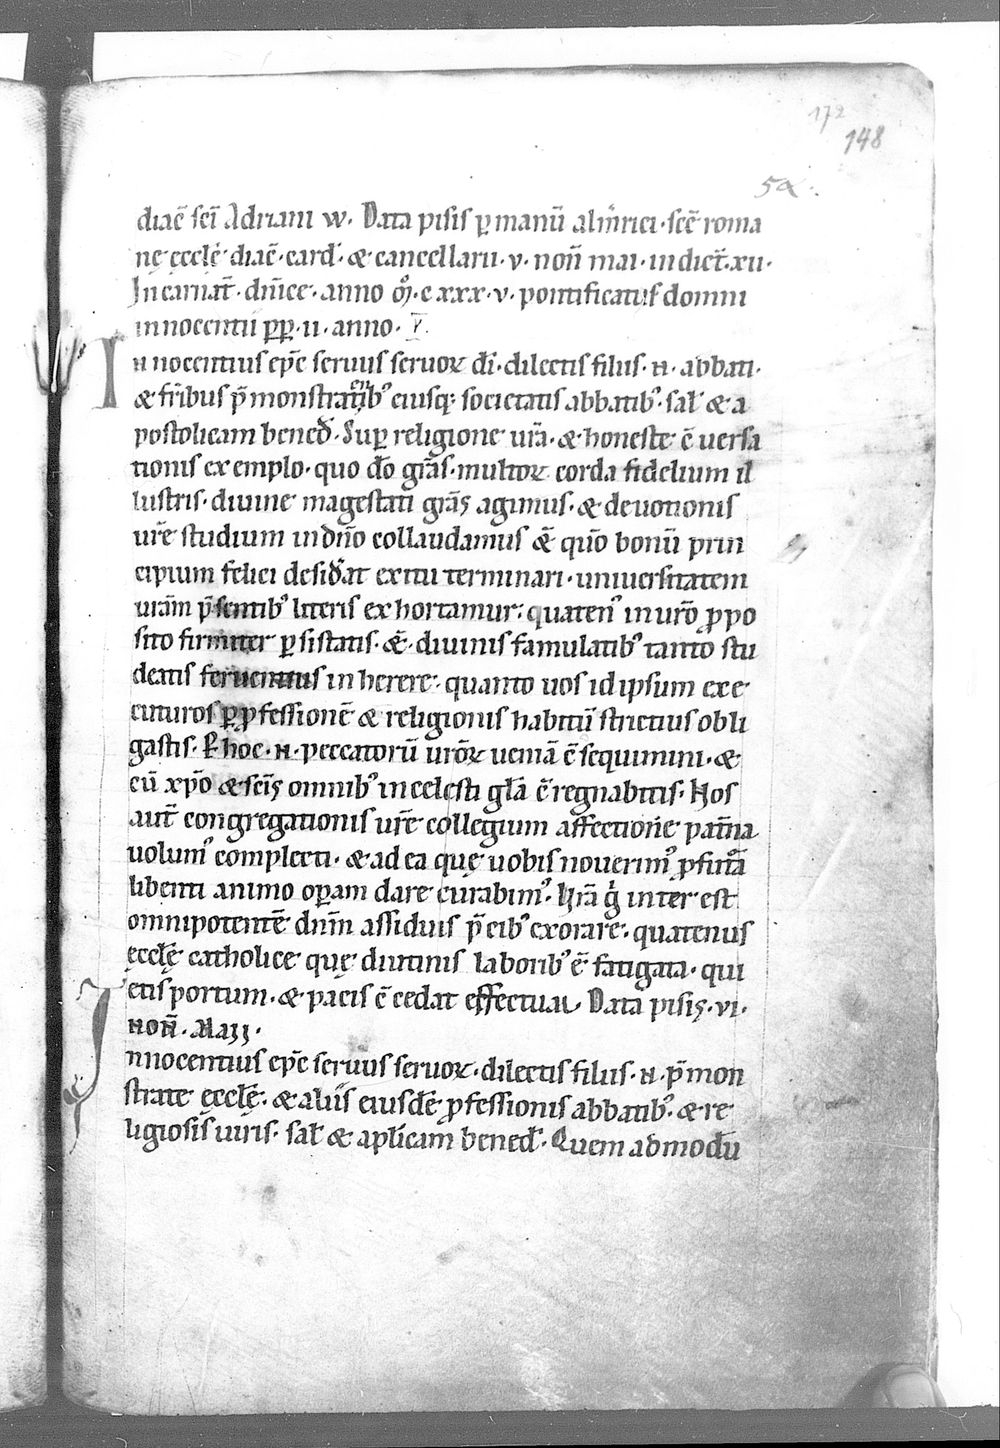 172
148
5a.
diac̄ sc̄i Adriani w. Data pisis ꝑ manū alm̄rici. sc̄e roma
nę eccl̄ę diac̄. card̄. & cancellarii. v. non̄ mai. indict̄. xii.
Incarnat̄. dn̄ice. anno m̊. c xxx. v. pontificatuſ domni
innocentii ꝑp. ii. anno. V.
Innocentius ep̄c ſeruus ſeruoꝝ dī. dilectis filiis. n. abbati.
& fr̄ibus p̄monſtratib᾿ eiusq; societatis abbatib᾿. sal̄ & a
postolicam bened̄. Suꝑ religione ur̄a. & honeste c̄uersa
tionis exemplo. quo do gr̄as. multoꝝ corda fidelium il
lustris. diuine magestati gr̄as agimus. & deuotionis
ur̄e studium in dn̄o collaudamus & quō bonū prin
cipium felici desid̄at exitu terminari. uniuersitatem
uram̄ p̄sentib᾿ literis exhortamur. quaten᾿ in ur̄o ꝓpo
sito firmiter ꝑsistatis. & diuinis famulatib᾿ tanto stu
deatis feruentius inherere. quanto uos id ipsum exe
cuturos ꝑ ꝓfessionē & religionis habitū strictius obli
gastis. Per hoc. n. peccatorū ur̄oꝝ ueniā c̄sequimini. &
cū xp̄o & sc̄is omnib᾿ in celesti gl̄a c̄regnabitis. Nos
aut̄ congregationis ur̄e collegium affectione pat̄na
uolum᾿ complecti. & ad ea quę uobis nouerim᾿ ꝓfutura
libenti animo oꝑam dare curabim᾿. Vr̄a g̊ interest
omnipotentē dn̄m assiduis p̄cib᾿ exorare. quatenus
ęccl̄ę catholice quę diutinis laborib᾿ ē fatigata. qui
etis portum. & pacis c̄cedat effectum. Data pisis. vi.
non̄. Maii.
Innocentius ep̄c ſeruus ſeruoꝝ. dilectis filiis. n. p̄mon
strate ęccl̄ę. & aliis eiusdē ꝓfessionis abbatib᾿. & re
ligiosis uiris. sal̄ & apl̄icam bened̄. Quemadmodū